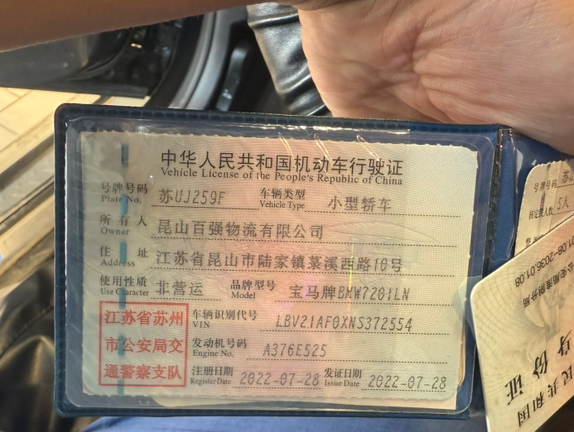 中华人民共和国机动车行驶证
Vehicle License of the People's Republic of China
号牌号码 苏UJ259F 车辆类型 小型轿车
Plate No. Vehicle Type
所有人 昆山百强物流有限公司
Owner
住址 江苏省昆山市陆家镇菉溪西路10号
Address
使用性质 非营运 品牌型号 宝马牌BMW7201LN
Use Character Model
江苏省苏州
市公安局交
通警察支队
车辆识别代号 LBV21AF0XNS372554
VIN
发动机号码 A376E525
Engine No.
注册日期 2022-07-28 发证日期 2022-07-28
Register Date Issue Date
号牌号码
5人
2036.01.08
民共和国
身份证